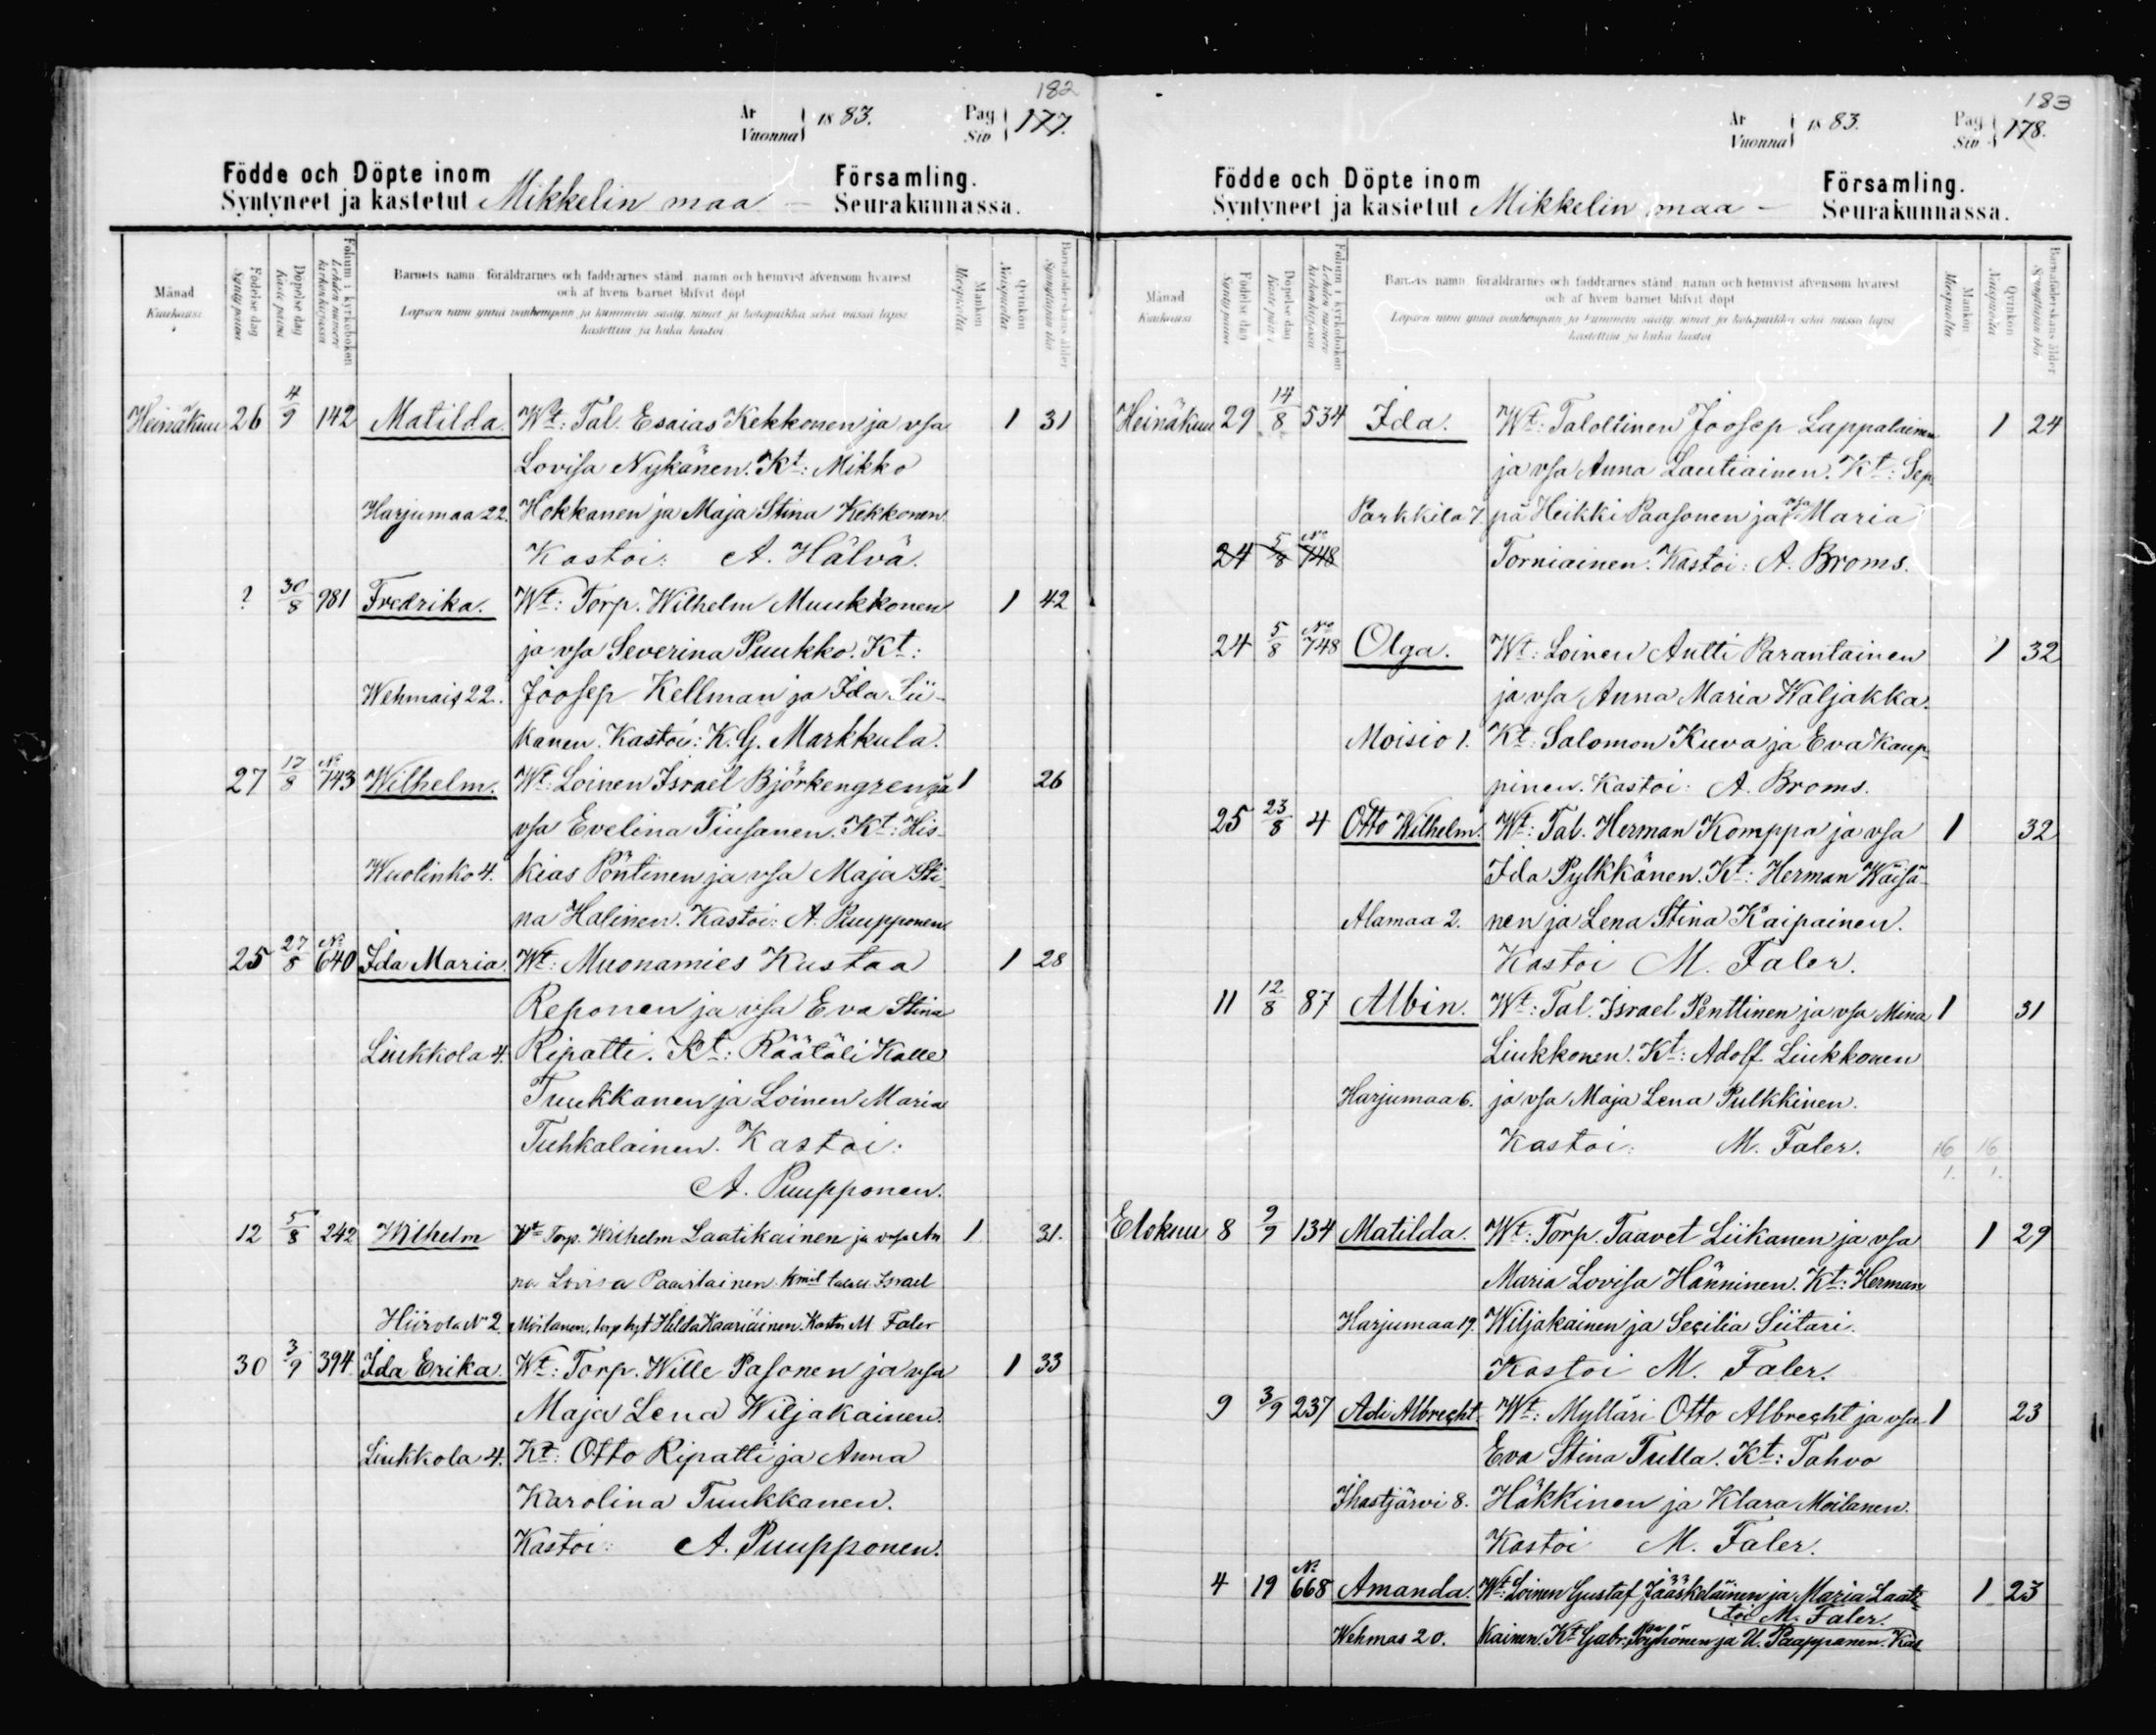 182
År Vuonna 1883. Pag Siv 177.
Födde och Döpte inom Församling.
Syntyneet ja kastetut Mikkelin maa – Seurakunnassa.
Månad Kuukausi
Födelse dag Syntypäivä
Döpelse dag Kastepäivä
Folium i kyrkoboken Lehden numero kirkonkirjassa
Barnets namn, föräldrarnes och faddrarnes stånd, namn och hemvist äfvensom hvarest
och af hvem barnet blifvit döpt
Lapsen nimi ynnä vanhempain ja kummein sääty, nimet ja kotopaikka sekä missä lapsi
kastettiin ja kuka kastoi
Mankön Miespuolia
Qvinkön Naispuolia
Barnaföderskans ålder Synnyttäjän ikä
Heinäkuu 26 4/9 142 Matilda. Wt: Tal. Esaias Kekkonen ja vsa 1 31
Lovisa Nykänen. Kt: Mikko
Harjumaa 22. Hokkanen ja Maja Stina Kekkonen
Kastoi: A. Hälvä.
? 30/8 981 Fredrika. Wt: Torp. Wilhelm Muukkonen 1 42
ja vsa Severina Puukko. Kt:
Wehmais 22. Joosep Kellman ja Ida Sii-
kanen. Kastoi: K. G. Markkula.
27 17/8 No 743 Wilhelm. Wt: Loinen Israel Björkengren ja 1 26
vsa Evelina Tiusanen. Kt: His-
Wuolinko 4. kias Pöntinen ja vsa Maja Sti-
na Halinen. Kastoi: A. Puupponen.
25 27/8 No 640 Ida Maria. Wt: Muonamies Kustaa 1 28
Reponen ja vsa Eva Stina
Liukkola 4. Ripatti. Kt: Räätäli Kalle
Tuukkanen ja Loinen Maria
Tuhkalainen. Kastoi:
A. Puupponen.
12 5/8 242 Wilhelm Wt Torp. Wilhelm Laatikainen ja vsa An 1 31.
na Lovisa Paasilainen. Kmit Israel
Hiirola No 2. Moilanen, torp tyt Hilda Kaariainen. Kastoi M Faler
30 3/9 394. Ida Erika. Wt: Torp. Wille Pasonen ja vsa 1 33
Maja Lena Wiljakainen.
Liukkola 4. Kt: Otto Ripatti ja Anna
Karolina Tuukkanen.
Kastoi: A. Puupponen.
183
År Vuonna 1883. Pag Siv 178.
Födde och Döpte inom Församling.
Syntyneet ja kastetut Mikkelin maa – Seurakunnassa.
Månad Kuukausi
Födelse dag Syntypäivä
Döpelse dag Kastepäivä
Folium i kyrkoboken Lehden numero kirkonkirjassa
Barnets namn, föräldrarnes och faddrarnes stånd, namn och hemvist äfvensom hvarest
och af hvem barnet blifvit döpt
Lapsen nimi ynnä vanhempain ja kummein sääty, nimet ja kotopaikka sekä missä lapsi
kastettiin ja kuka kastoi
Mankön Miespuolia
Qvinkön Naispuolia
Barnaföderskans ålder Synnyttäjän ikä
Heinäkuu 29 14/8 534 Ida. Wt: Talollinen Joosep Lappalainen 1 24
ja vsa Anna Lautiainen. Kt: Sep-
Parkkila 7. pä Heikki Paasonen ja vsa Maria
24 5/8 No 748 Torniainen. Kastoi: A. Broms.
24 5/8 No 748 Olga. Wt: Loinen Antti Parantainen 1 32
ja vsa Anna Maria Waljakka.
Moisio 1. Kt: Salomon Kuva ja Eva Kaup-
pinen. Kastoi: A. Broms.
25 23/8 4 Otto Wilhelm. Wt: Tal. Herman Komppa ja vsa 1 32
Ida Pylkkänen. Kt: Herman Wäisä-
Alamaa 2. nen ja Lena Stina Kaipainen.
Kastoi M. Faler.
11 12/8 87 Albin. Wt: Tal. Israel Penttinen ja vsa Mina 1 31
Liukkonen. Kt: Adolf Liukkonen
Harjumaa 6. ja vsa Maja Lena Pulkkinen.
Kastoi: M. Faler. 16 16
1. 1.
Elokuu 8 9/9 134 Matilda. Wt: Torp. Taavet Liikanen ja vsa 1 29
Maria Lovisa Hänninen. Kt: Herman
Harjumaa 19. Wiljakainen ja Sesilia Siitari.
Kastoi M. Faler.
9 3/9 237 Adi Albreght. Wt: Mylläri Otto Albreght ja vsa 1 23
Eva Stina Tulla. Kt: Tahvo
Ihastjärvi 8. Häkkinen ja Klara Moilanen.
Kastoi M. Faler.
4 19 No 668 Amanda. Wt: Loinen Gustaf Jääskeläinen ja Maria Laati- 1 23
toi M. Faler.
Wehmas 20. kainen. Kt Gabr. Pöyhönen ja U. Paappanen. Kas